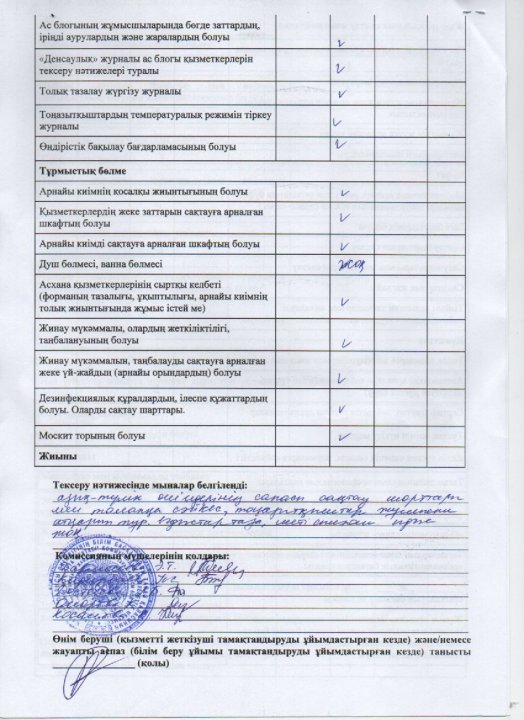 Ас блогының жұмысшыларында бөгде заттардың,
іріңді аурулардың және жаралардың болуы
«Денсаулық» журналы ас блогы қызметкерлерін
тексеру нәтижелері туралы
Толық тазалау жүргізу журналы
Тоңазытқыштардың температуралық режимін тіркеу
журналы
Өндірістік бақылау бағдарламасының болуы
Тұрмыстық бөлме
Арнайы киімнің қосалқы жиынтығының болуы
Қызметкерлердің жеке заттарын сақтауға арналған
шкафтың болуы
Арнайы киімді сақтауға арналған шкафтың болуы
Душ бөлмесі, ванна бөлмесі жоқ
Асхана қызметкерлерінің сыртқы келбеті
(форманың тазалығы, ұқыптылығы, арнайы киімнің
толық жиынтығында жұмыс істей ме)
Жинау мүкәммалы, олардың жеткіліктілігі,
таңбалануының болуы
Жинау мүкәммалын, таңбалауды сақтауға арналған
жеке үй-жайдың (арнайы орындардың) болуы
Дезинфекциялық құралдардың, ілеспе құжаттардың
болуы. Оларды сақтау шарттары.
Москит торының болуы
Жиыны
Тексеру нәтижесінде мыналар белгіленді:
азық-түлік өнімдерінің сапасы сақтау шарттары
мен талапқа сәйкес,
тұр. таза,
жоқ
Комиссияның мүшелерінің қолдары:
Өнім беруші (қызметті жеткізуші тамақтандыруды ұйымдастырған кезде) және/немесе
жауапты аспаз (білім беру ұйымы тамақтандыруды ұйымдастырған кезде) танысты
(қолы)